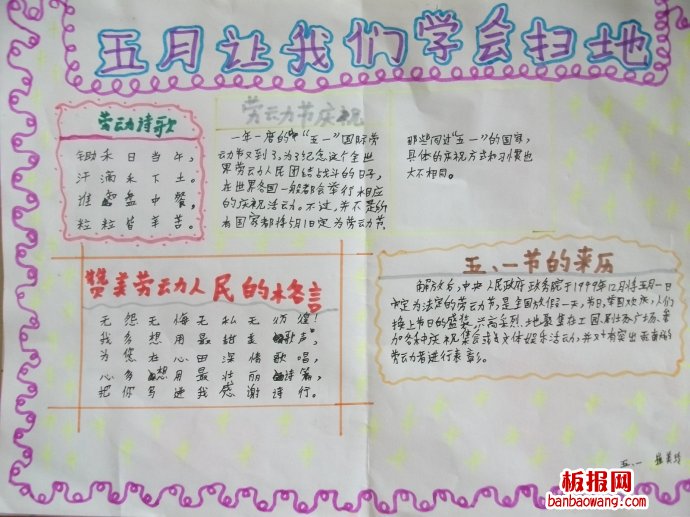 五月让我们学会扫地
劳动诗歌
锄禾日当午，
汗滴禾下土。
谁 盘中餐，
粒粒皆辛苦。
劳动节庆祝
一年一度的"五一"国际劳
动节又到了，为了纪念这个全世
界劳动人民团结战斗的日子，
在世界各国一般都会举行相应
的庆祝活动。不过，并不是所
有国家都将5月1日定为劳动节。
那些同过"五一"的国家，
具体的庆祝方式和习惯也
大不相同。
赞美劳动人民的 名言
无怨无悔无私无彷徨！
我多想用最甜美 歌声，
为您在心田深情歌唱，
心多想用最壮丽 诗篇，
把你写进我感谢诗行。
五、一节的来历
解放后，中央人民政府政务院于1949年12月将五月一日
定为法定的劳动节，是全国放假一天，节日，举国欢庆，人们
换上节日的盛装，兴高采烈地聚集在工园、剧场、广场，参
加各种庆祝集会或文体娱乐活动，并对有突出贡献的
劳动者进行表彰。
五、一
板报网
banbaowang.com